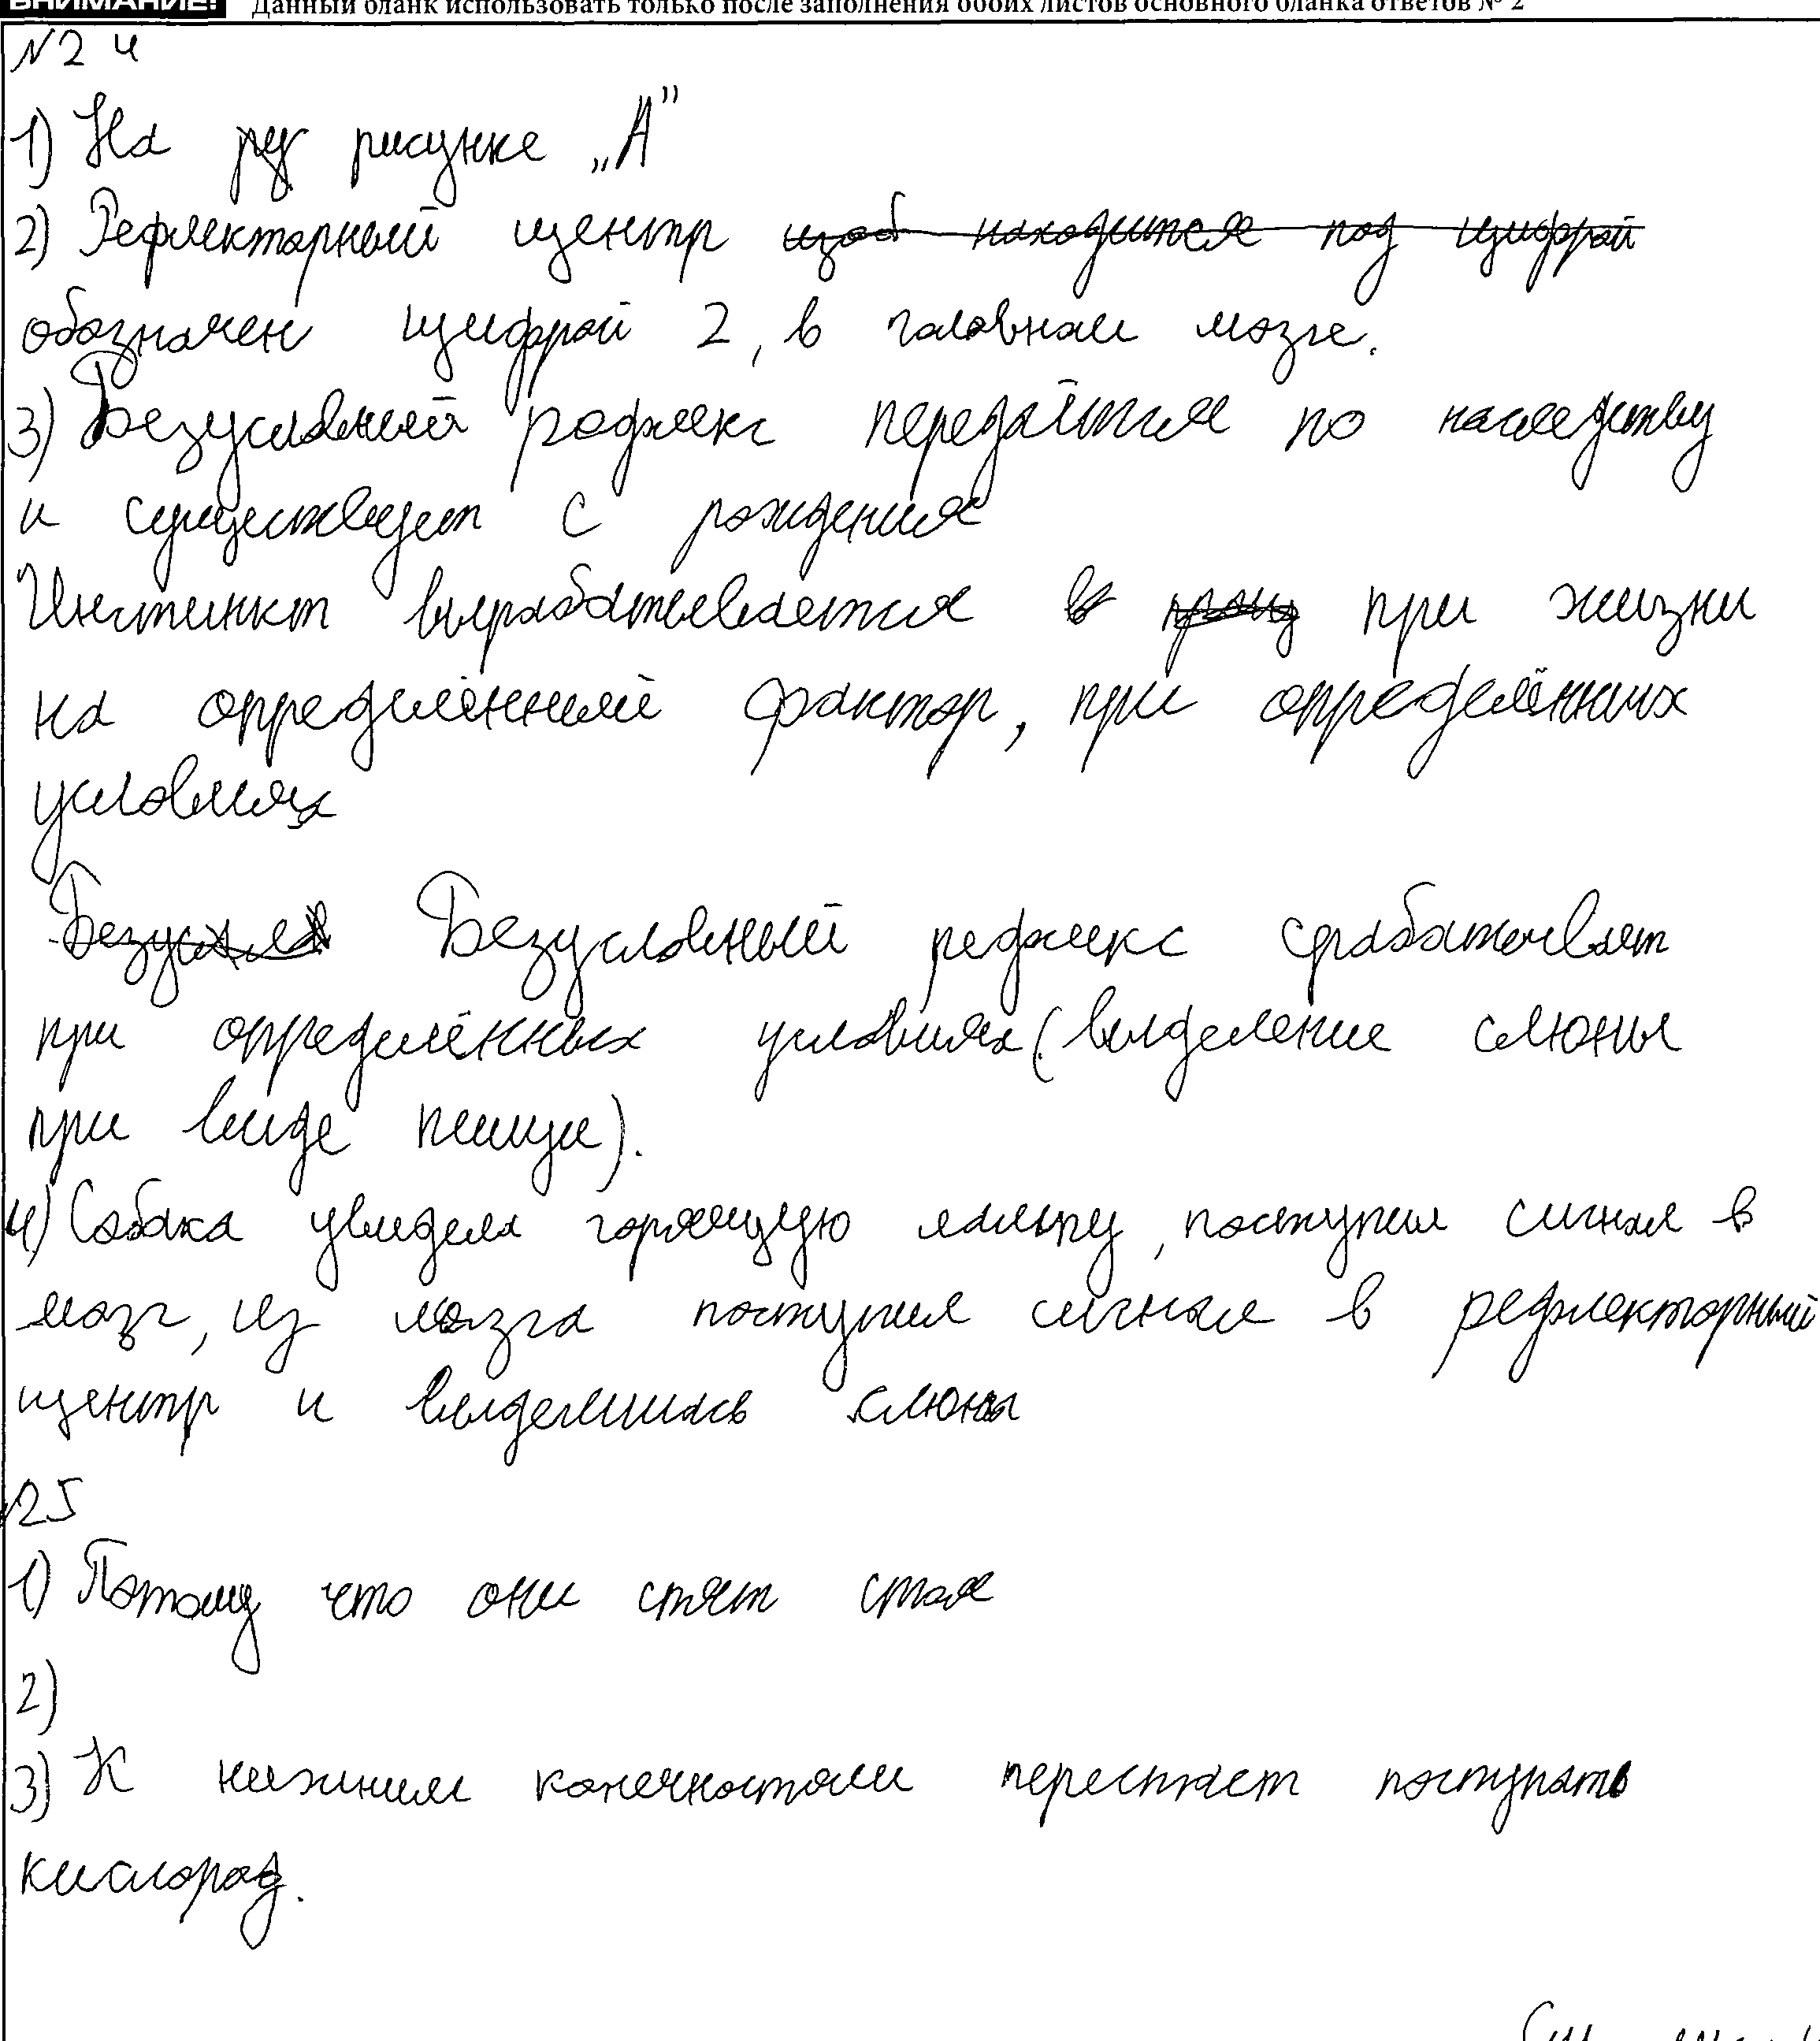 ВНИМАНИЕ! Данный бланк использовать только после заполнения обоих листов основного бланка ответов № 2
№24
1) На рисунке „А"
2) Рефлекторный центр находится под цифрой
обозначен цифрой 2, в головном мозге.
3) Безусловный рефлекс передаётся по наследству
и существует с рождения
Инстинкт вырабатывается в при жизни
на определённый фактор, при определённых
условиях
Безуслов Безусловный рефлекс срабатывает
при определённых условиях (выделение слюны
при виде пищи).
4) Собака увидела горящую лампу, поступил сигнал в
мозг, из мозга поступил сигнал в рефлекторный
центр и выделилась слюна
№25
1) Потому что они спят стоя
2)
3) К нижним конечностям перестает поступать
кислород.